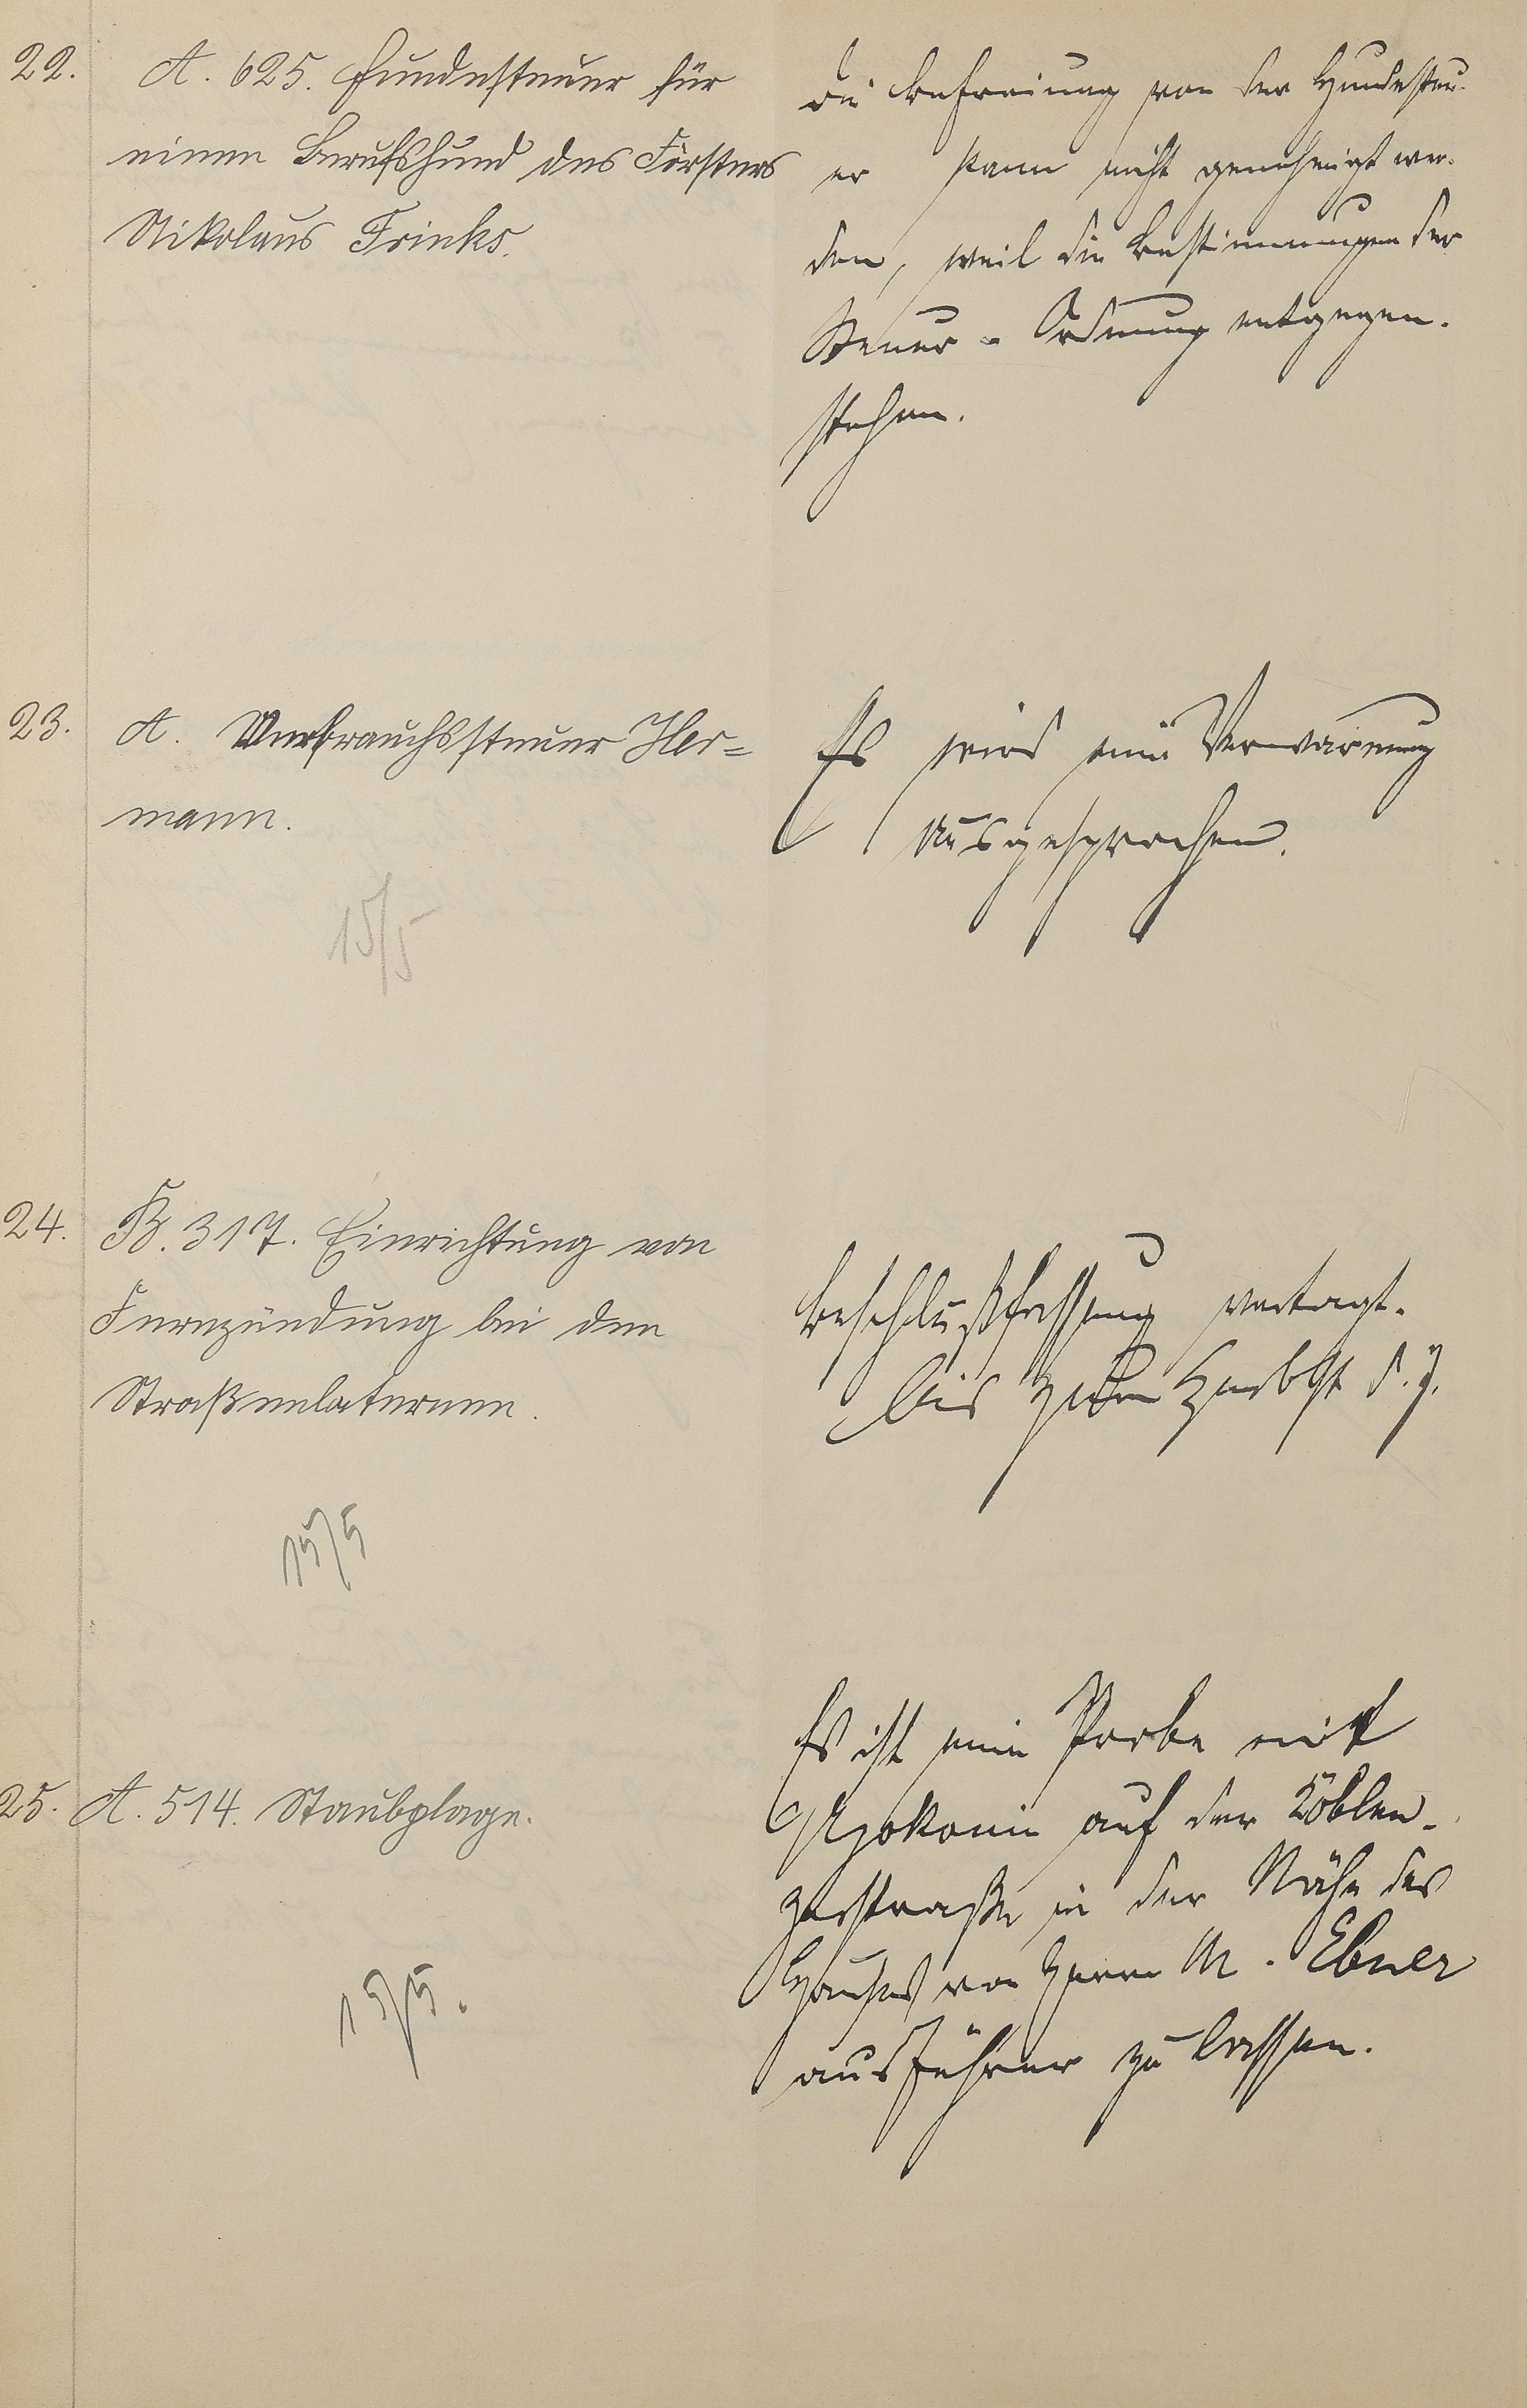 22.
A. 625. Hundesteuer für
einen Berufshund des Försters
Nikolaus Frinks.
Die Befreiung von der Hundesteu-
er kann nicht genehmigt wer-
den, weil die Bestimmungen der
Steuer-Ordnung entgegen-
stehen.
23.
A. Verbrauchssteuer Her=
mann.
15/5
Es wird eine Verwarnung
ausgesprochen.
24.
B. 317. Einrichtung von
Fernzündung bei den
Straßenlaternen.
15/5
Beschlußfassung vertagt.
bis zum Herbst d. J.
25.
A. 514. Staubplage.
15/5.
Es ist eine Probe mit
auf der Koblen-
zerstraße in der Nähe des
Hauses von Herrn M. Ebner
ausführen zu lassen.